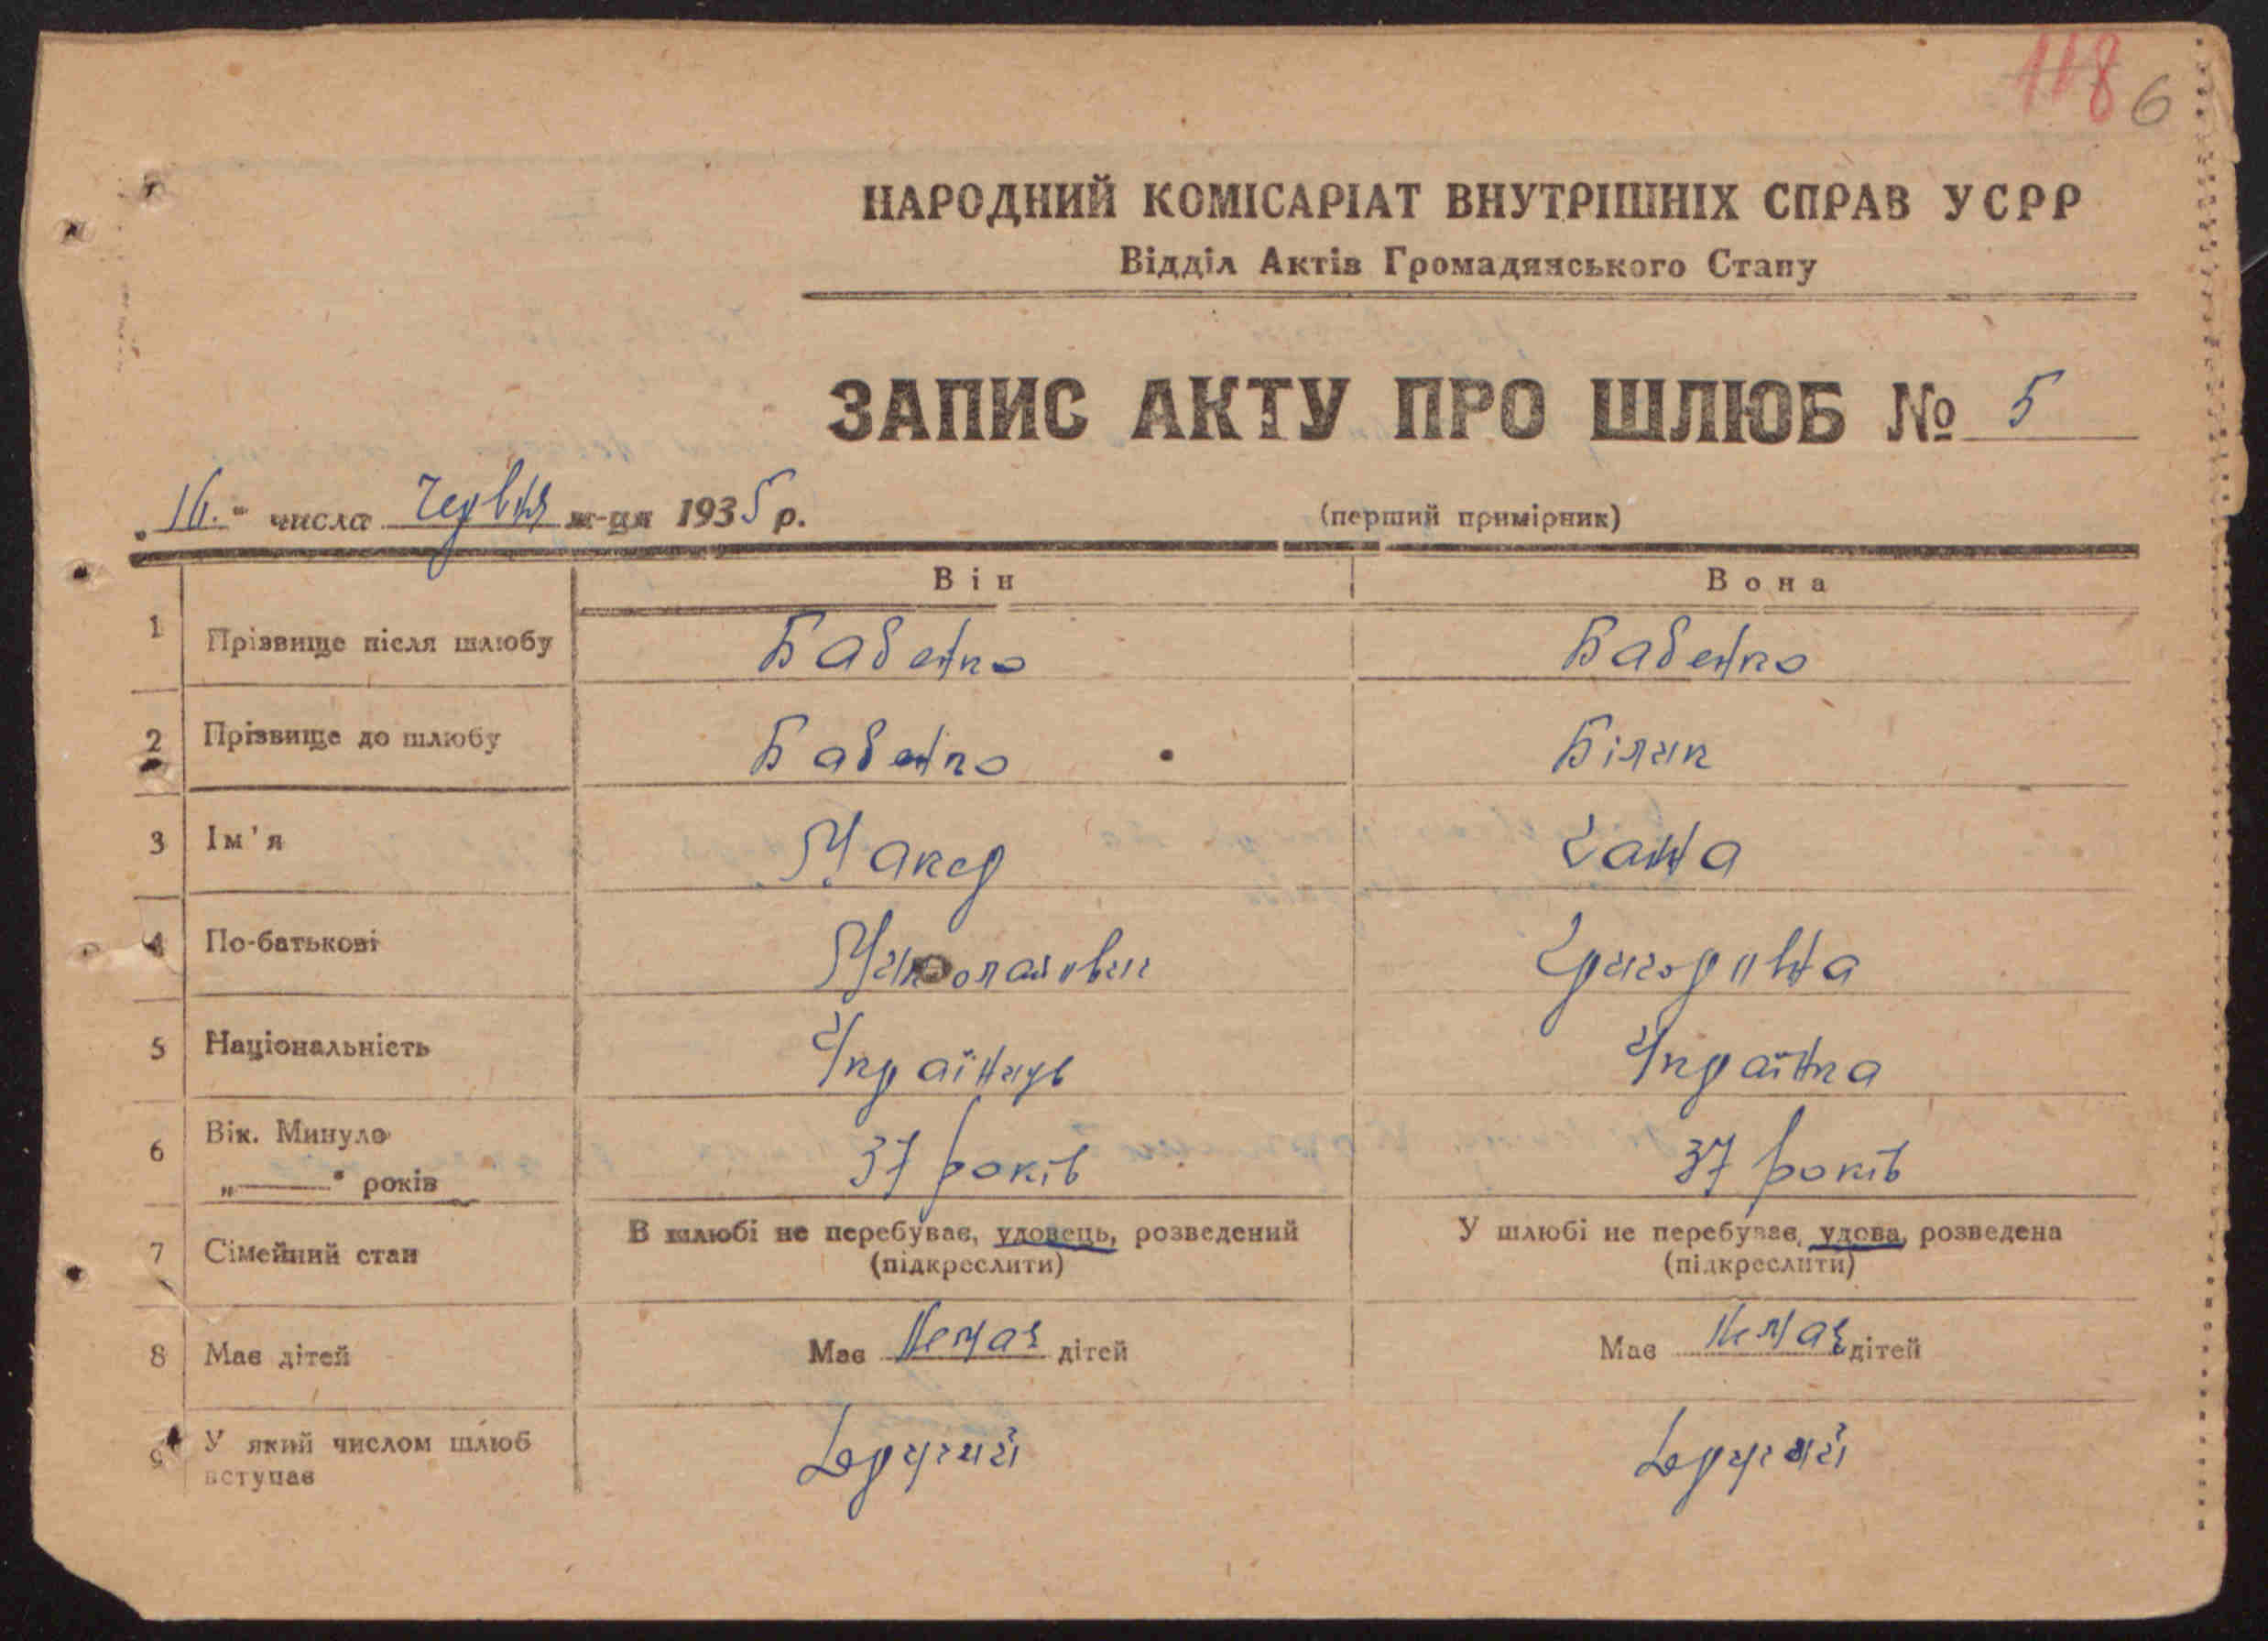 118 6
НАРОДНИЙ КОМІСАРІАТ ВНУТРІШНІХ СПРАВ УСРР
Відділ Актів Громадянського Стану
ЗАПИС АКТУ ПРО ШЛЮБ № 5
„16.“ числа червня м-ця 1935 р. (перший примірник)
Він Вона
1 Прізвище після шлюбу Бабенко Бабенко
2 Прізвище до шлюбу Бабенко Білик
3 Ім'я Макар Ганна
4 По-батькові Миколайович Григорівна
5 Національність Українець Українка
6 Вік. Минуло 37 років 37 років
„——“ років
7 Сімейний стан В шлюбі не перебуває, удовець, розведений У шлюбі не перебуває, удова, розведена
(підкреслити) (підкреслити)
8 Має дітей Має Немає дітей Має Немає дітей
9 У який числом шлюб Другий Другий
вступає